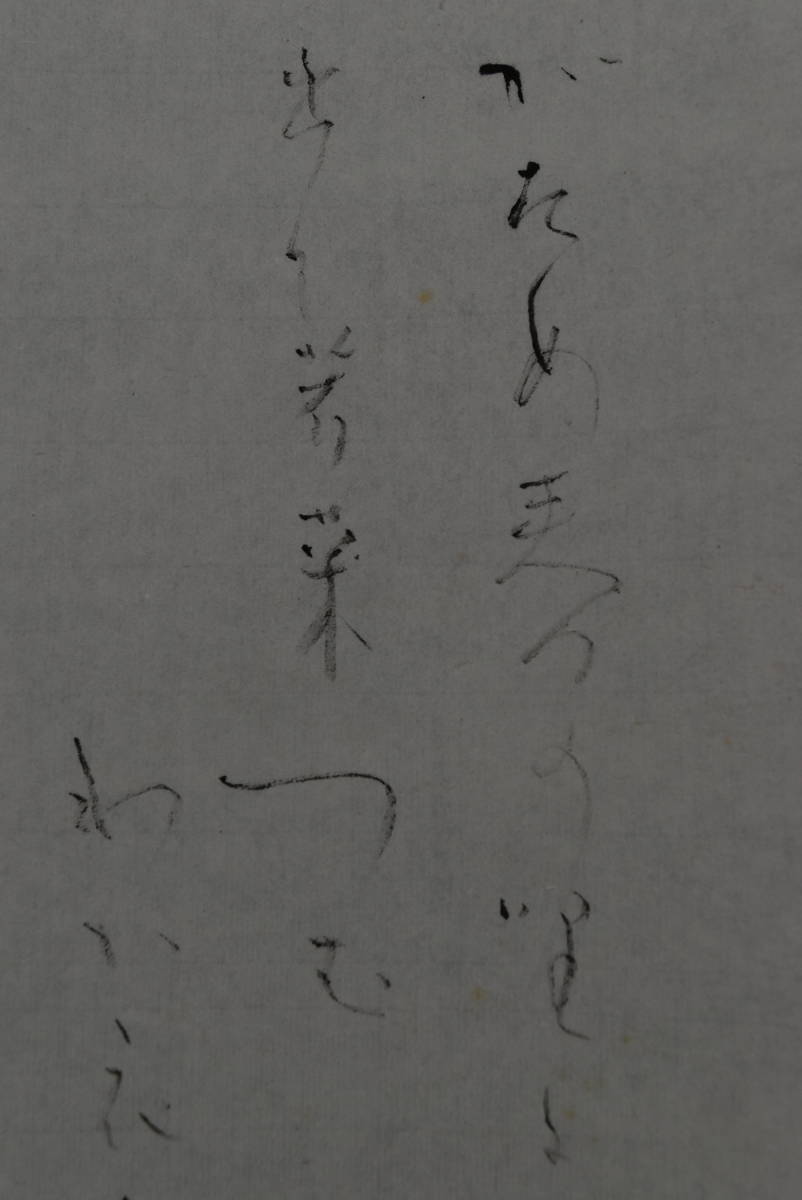 がため春の野に
出でて若菜つむ
わが衣